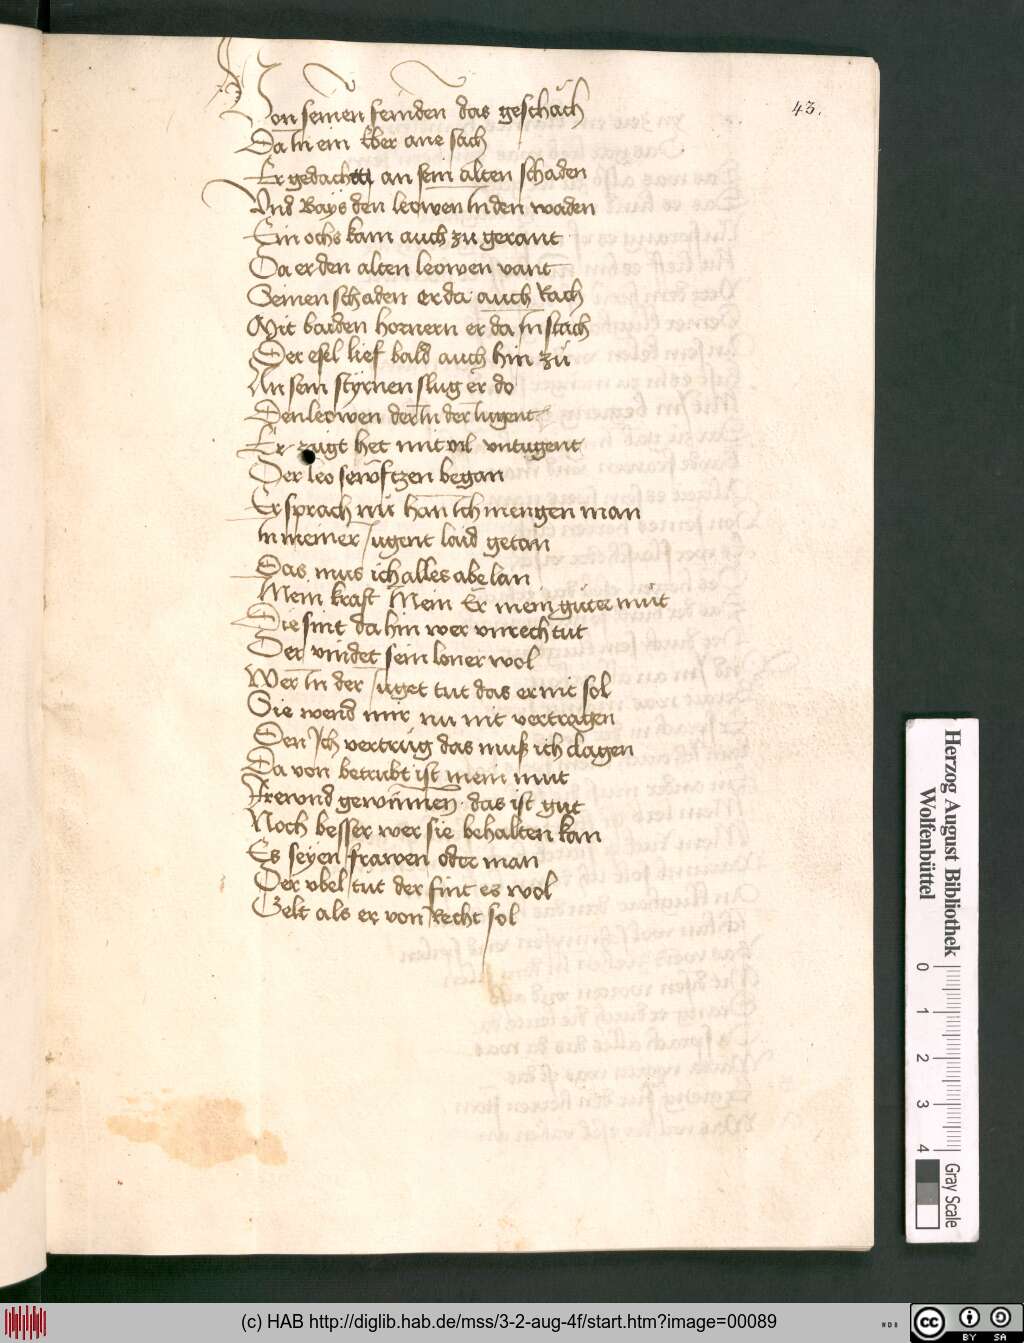 43.
Von seinen feinden das geschach
Da in ein Eber ane sach
Er gedacht an sein alten schaden
Vnd Bays den leowen in den waden
Ein ochs kam auch zu gerant
Da er den alten leowen vant
Seinen schaden er da auch Rach
Mit baiden hoernern er da in stach
Der esel lief bald auch hin zů
An sein styrnen slug er do
Den leowen der in der iugent
Er zaigt het mit vil vntugent
Der leo sewftzen began
Er sprach nu han ich mengen man
In meiner Iugent laid getan
Das mus ich alles abe lan
Mein kraft Mein Er mein guter mut
Die sint da hin wer vnrech tut
Der vindet sein loner wol
Wer in der Iuget tut das er nit sol
Sie wend mir nu nit vertragen
Den Ich vertrug das muß ich clagen
Da von betrubt ist mein mut
Frewnd gewinnen das ist gut
Noch besser wer sie behalten kan
Es seyen frawen oder man
Der vbel tut der fint es wol
Gelt als er von Recht sol
Herzog August Bibliothek
Wolfenbüttel
0 1 2 3 4
Gray Scale
(c) HAB http://diglib.hab.de/mss/3-2-aug-4f/start.htm?image=00089
WDB
cc BY SA